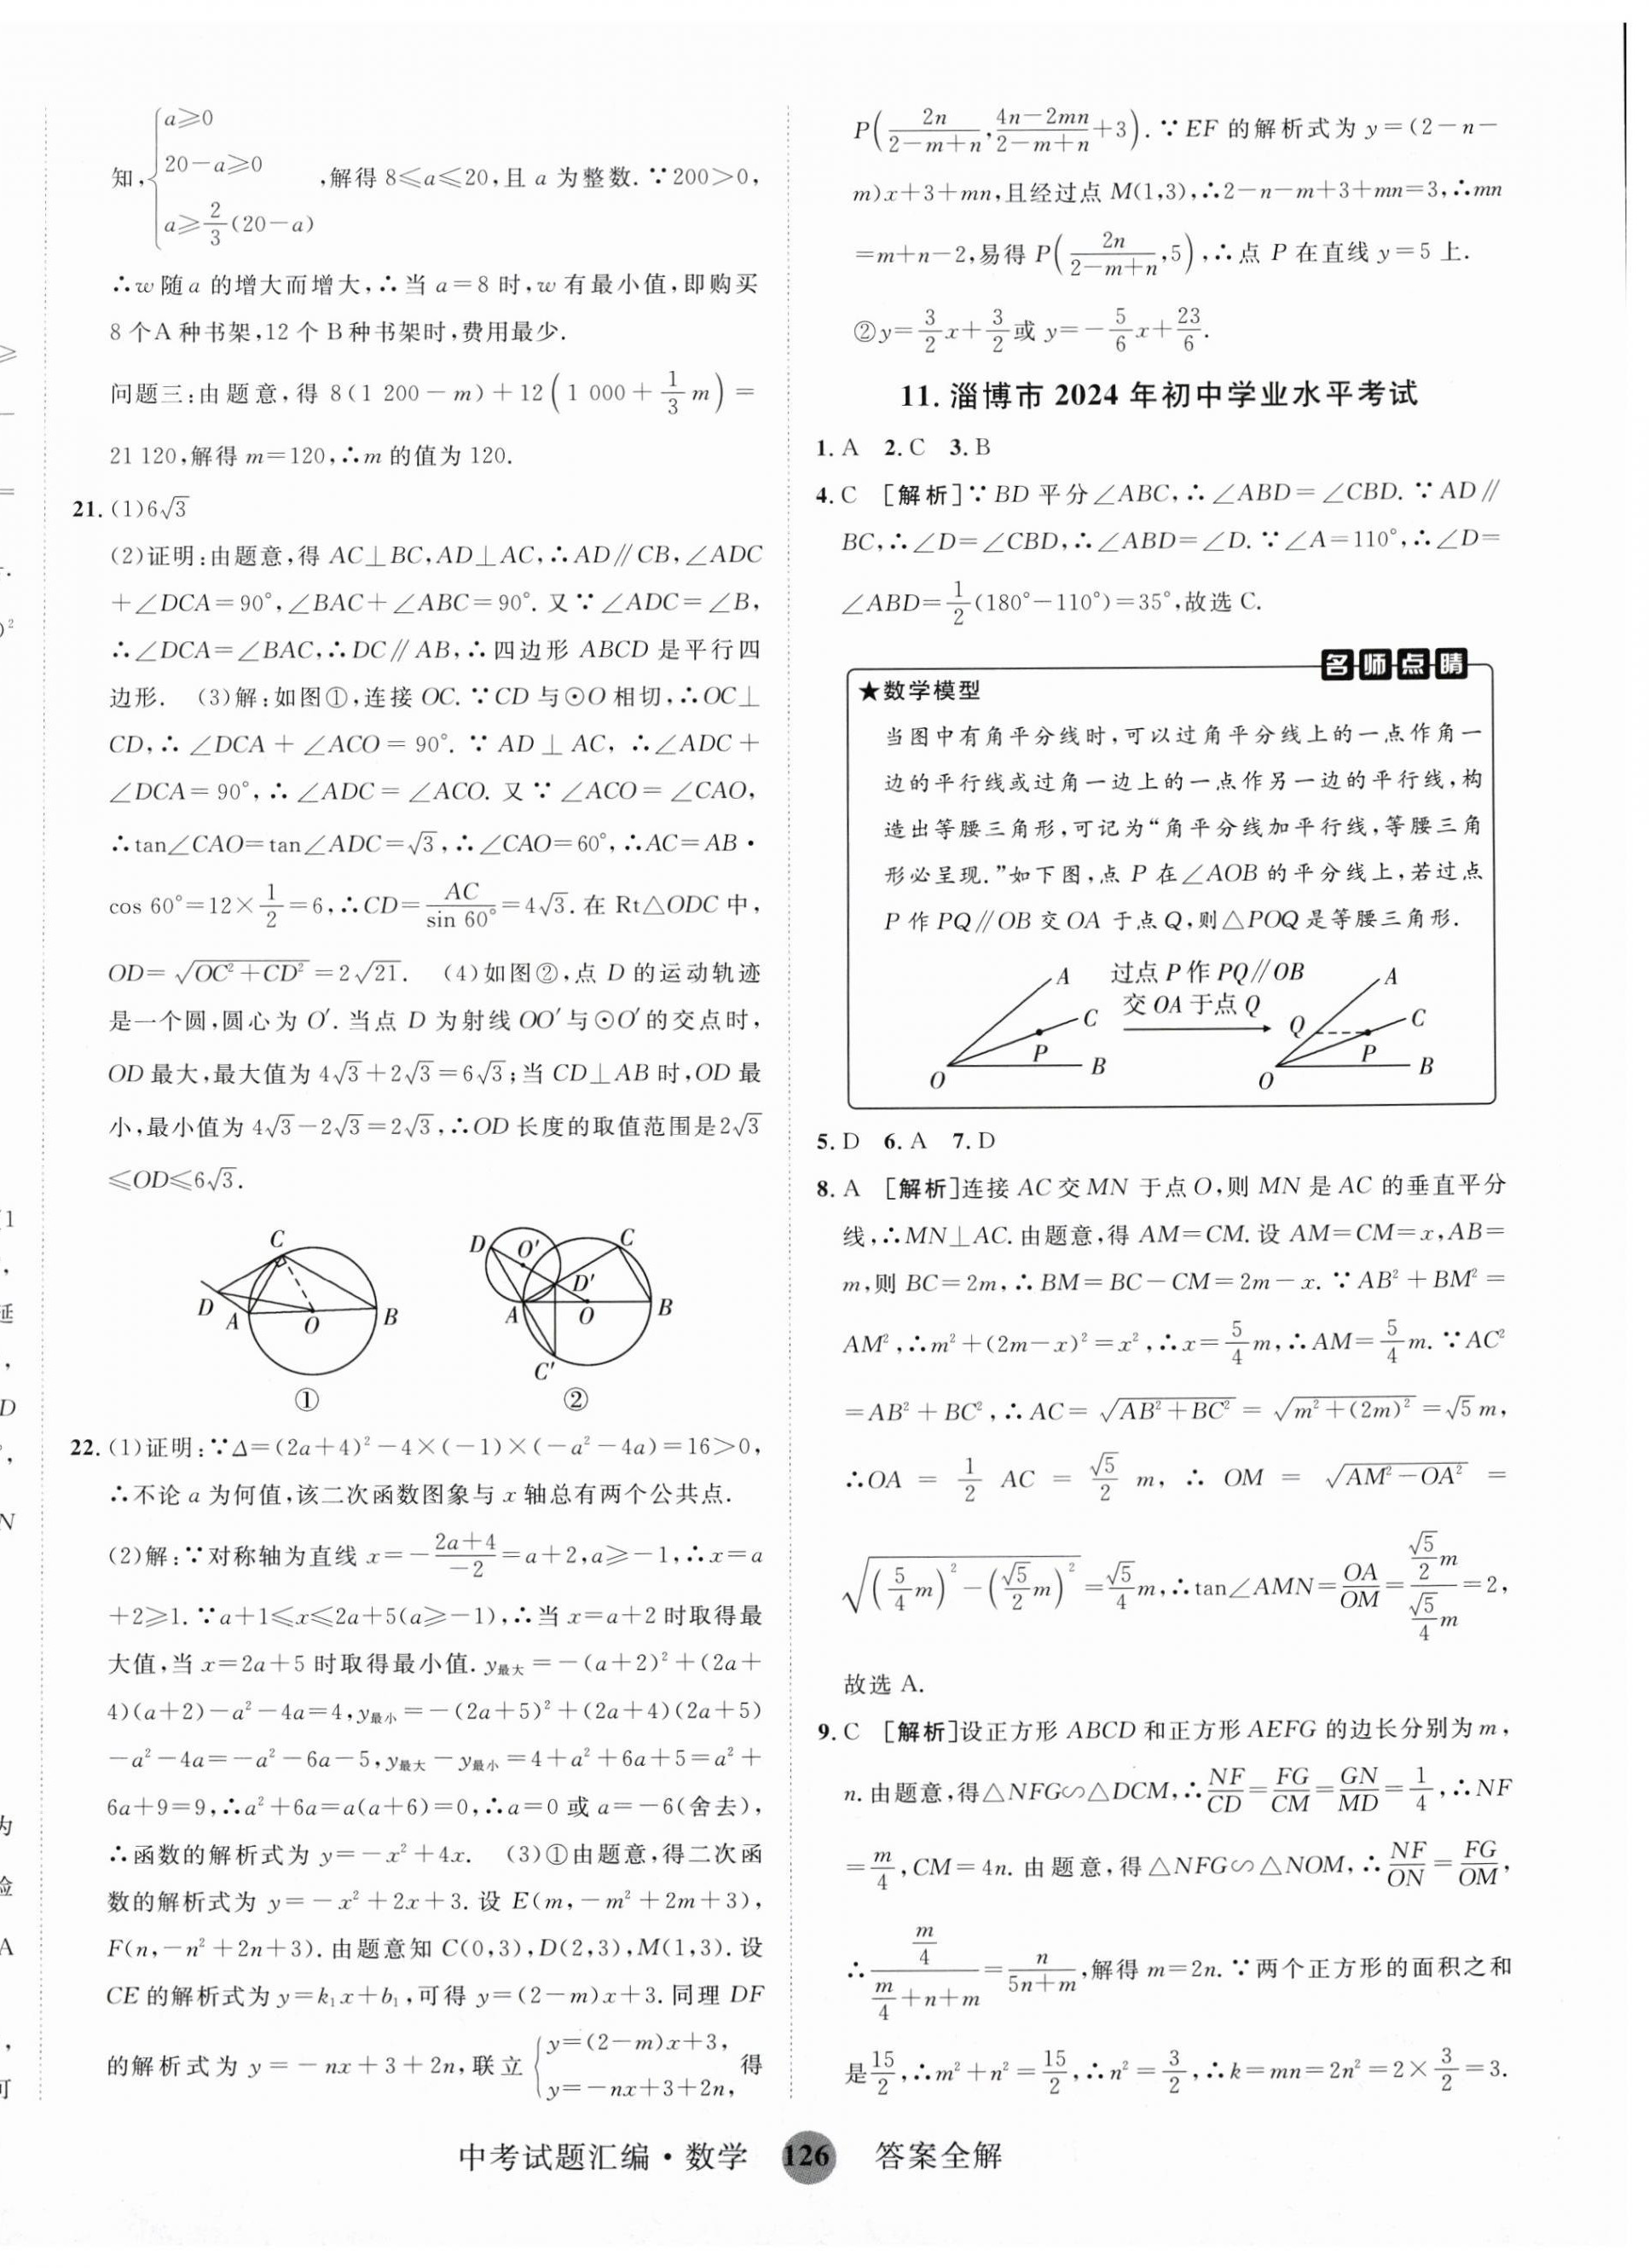 知,{a≥0
20-a≥0
a≥2/3(20-a) ,解得 8≤a≤20,且 a 为整数.∵200>0,
∴w随a 的增大而增大,∴当 a=8 时,w有最小值,即购买
8个A种书架,12个B种书架时,费用最少.
问题三:由题意,得 8(1 200-m)+12(1 000+1/3m)=
21 120,解得 m=120,∴m的值为120.
21.(1)6√3
(2)证明:由题意,得 AC⊥BC,AD⊥AC,∴AD∥CB,∠ADC
+∠DCA=90°,∠BAC+∠ABC=90°.又∵∠ADC=∠B,
∴∠DCA=∠BAC,∴DC∥AB,∴四边形 ABCD 是平行四
边形. (3)解:如图①,连接 OC.∵CD与⊙O相切,∴OC⊥
CD,∴∠DCA+∠ACO=90°.∵AD⊥AC,∴∠ADC+
∠DCA=90°,∴∠ADC=∠ACO.又∵∠ACO=∠CAO,
∴tan∠CAO=tan∠ADC=√3,∴∠CAO=60°,∴AC=AB·
cos 60°=12×1/2=6,∴CD=AC/sin 60°=4√3.在 Rt△ODC中,
OD=√(OC²+CD²)=2√21. (4)如图②,点 D 的运动轨迹
是一个圆,圆心为 O′.当点 D 为射线OO′与⊙O′的交点时,
OD最大,最大值为 4√3+2√3=6√3;当CD⊥AB时,OD最
小,最小值为 4√3-2√3=2√3,∴OD长度的取值范围是2√3
≤OD≤6√3.
C
D
A
O
B
①
D
O′
C
D′
A
O
B
C′
②
22.(1)证明:∵Δ=(2a+4)²-4×(-1)×(-a²-4a)=16>0,
∴不论 a 为何值,该二次函数图象与 x 轴总有两个公共点.
(2)解:∵对称轴为直线 x=-(2a+4)/(-2)=a+2,a≥-1,∴x=a
+2≥1.∵a+1≤x≤2a+5(a≥-1),∴当 x=a+2时取得最
大值,当 x=2a+5 时取得最小值.y最大=-(a+2)²+(2a+
4)(a+2)-a²-4a=4,y最小=-(2a+5)²+(2a+4)(2a+5)
-a²-4a=-a²-6a-5,y最大-y最小=4+a²+6a+5=a²+
6a+9=9,∴a²+6a=a(a+6)=0,∴a=0或a=-6(舍去),
∴函数的解析式为 y=-x²+4x. (3)①由题意,得二次函
数的解析式为 y=-x²+2x+3.设 E(m,-m²+2m+3),
F(n,-n²+2n+3).由题意知C(0,3),D(2,3),M(1,3).设
CE的解析式为y=k₁x+b₁,可得 y=(2-m)x+3.同理 DF
的解析式为 y=-nx+3+2n,联立{y=(2-m)x+3,
y=-nx+3+2n, 得
P(2n/(2-m+n),(4n-2mn)/(2-m+n)+3).∵EF 的解析式为 y=(2-n-
m)x+3+mn,且经过点 M(1,3),∴2-n-m+3+mn=3,∴mn
=m+n-2,易得 P(2n/(2-m+n),5),∴点 P 在直线 y=5 上.
②y=3/2x+3/2或 y=-5/6x+23/6.
11.淄博市 2024 年初中学业水平考试
1.A 2.C 3.B
4.C [解析]∵BD 平分∠ABC,∴∠ABD=∠CBD.∵AD∥
BC,∴∠D=∠CBD,∴∠ABD=∠D.∵∠A=110°,∴∠D=
∠ABD=1/2(180°-110°)=35°,故选 C.
名师点睛
★数学模型
当图中有角平分线时,可以过角平分线上的一点作角一
边的平行线或过角一边上的一点作另一边的平行线,构
造出等腰三角形,可记为“角平分线加平行线,等腰三角
形必呈现.”如下图,点 P 在∠AOB 的平分线上,若过点
P 作 PQ∥OB 交 OA 于点 Q,则△POQ是等腰三角形.
A
C
P
B
O
过点 P 作 PQ∥OB
交 OA 于点 Q
A
Q
C
P
B
O
5.D 6.A 7.D
8.A [解析]连接 AC交MN 于点O,则 MN 是 AC 的垂直平分
线,∴MN⊥AC.由题意,得 AM=CM.设 AM=CM=x,AB=
m,则 BC=2m,∴BM=BC-CM=2m-x.∵AB²+BM²=
AM²,∴m²+(2m-x)²=x²,∴x=5/4m,∴AM=5/4m.∵AC²
=AB²+BC²,∴AC=√(AB²+BC²)=√(m²+(2m)²)=√5m,
∴OA=1/2AC=√5/2m,∴OM=√(AM²-OA²)=
√((5/4m)²-(√5/2m)²)=√5/4m,∴tan∠AMN=OA/OM=(√5/2m)/(√5/4m)=2,
故选 A.
9.C [解析]设正方形 ABCD 和正方形 AEFG 的边长分别为 m,
n.由题意,得△NFG∽△DCM,∴NF/CD=FG/CM=GN/MD=1/4,∴NF
=m/4,CM=4n.由题意,得△NFG∽△NOM,∴NF/ON=FG/OM,
∴(m/4)/(m/4+n+m)=n/(5n+m),解得 m=2n.∵两个正方形的面积之和
是15/2,∴m²+n²=15/2,∴n²=3/2,∴k=mn=2n²=2×3/2=3.
中考试题汇编·数学 126 答案全解